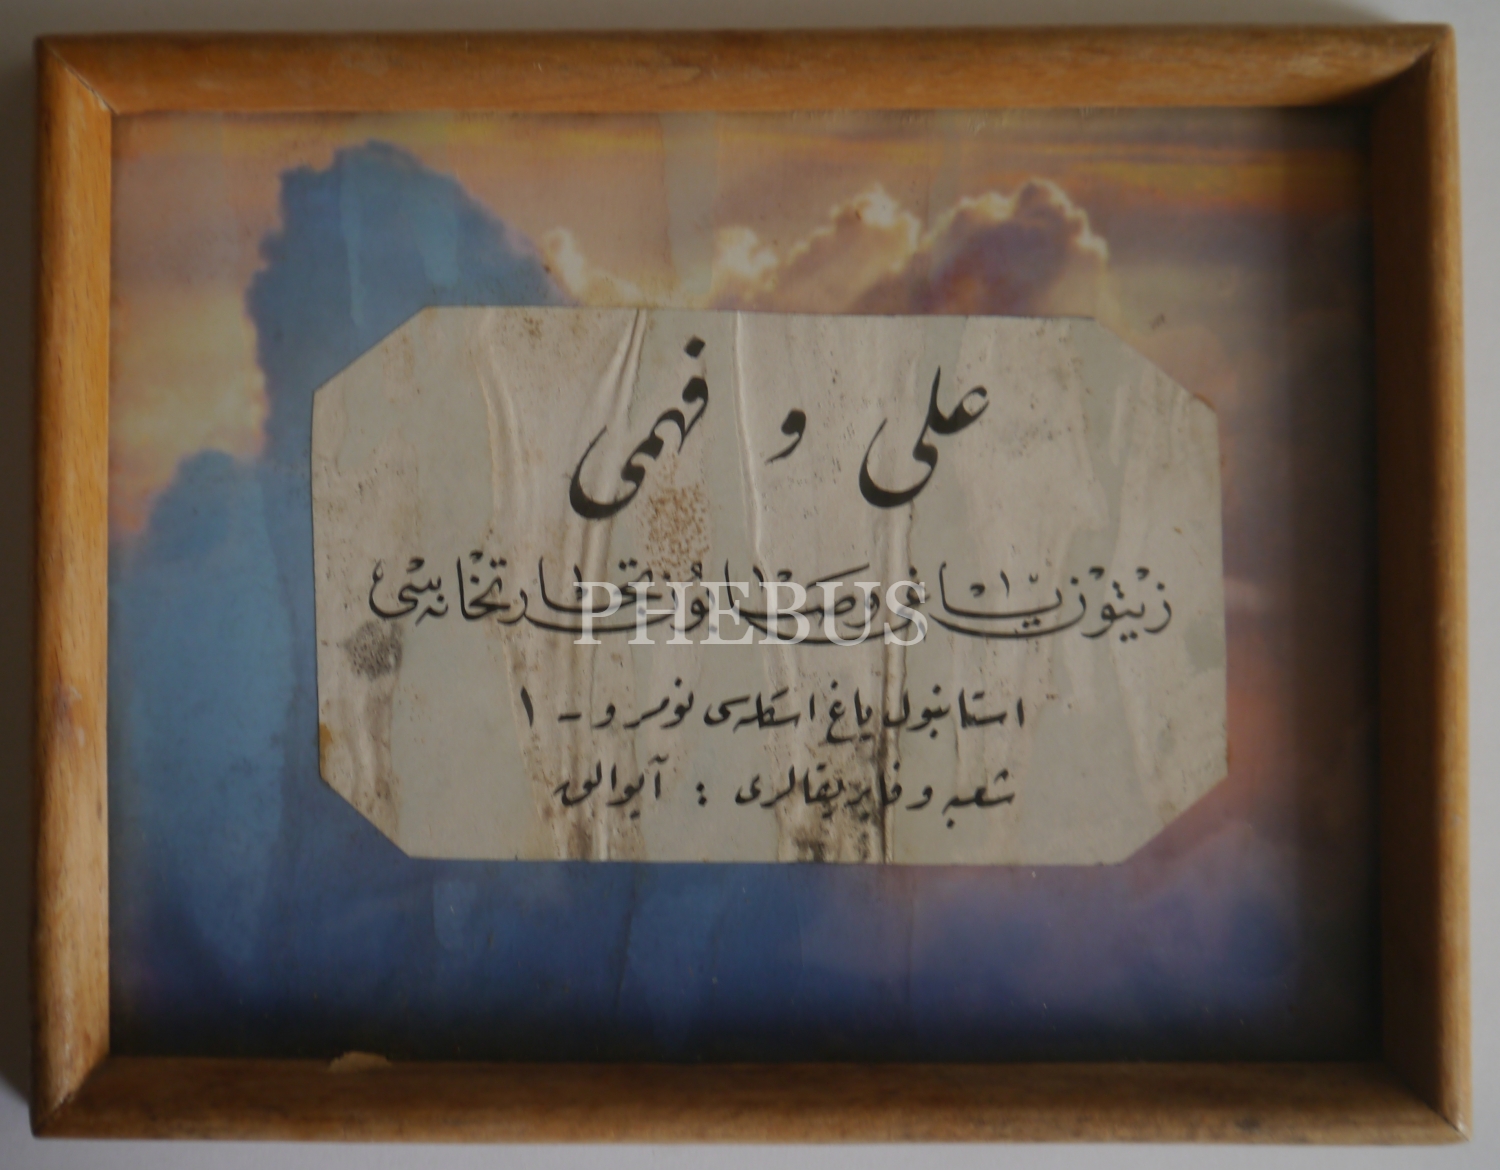 علی و فهمی
زیتون یاغی و صابون تجارتخانه‌سی
استانبول یاغ اسکله‌سی نومرو - ۱
شعبه و فابریقالری : آیوالق
PHEBUS